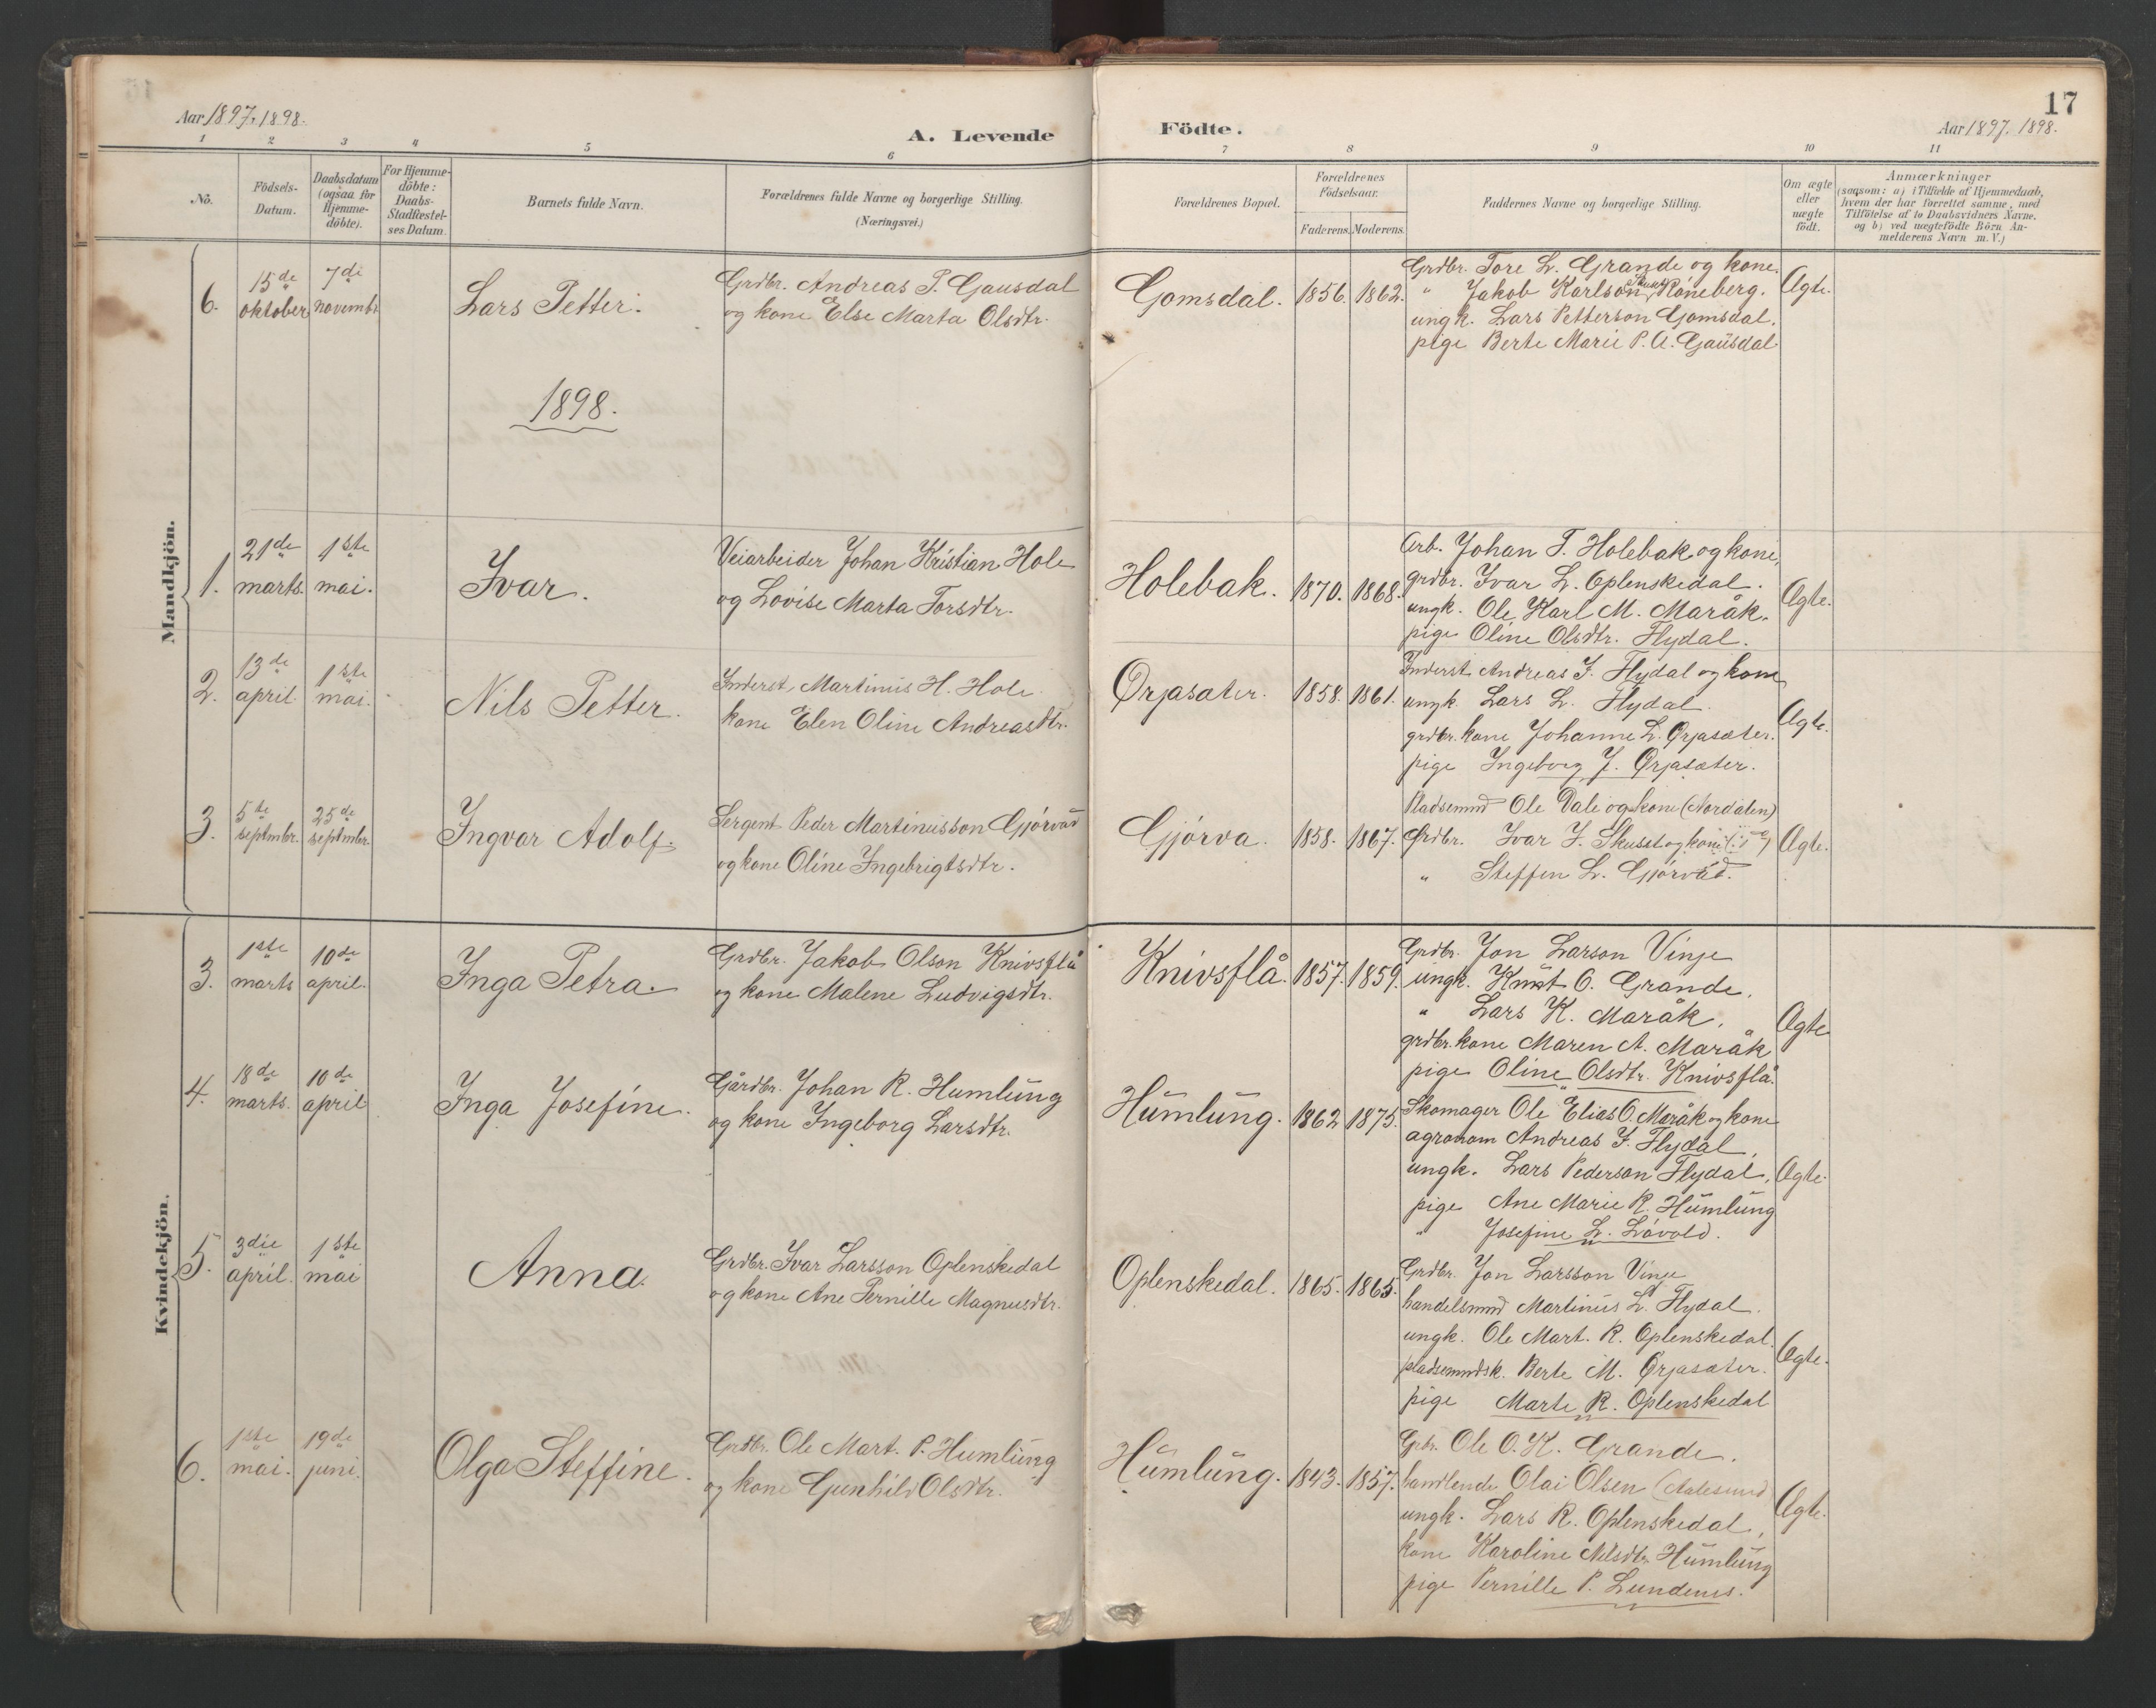 17
Aar 1897. 1898.
A. Levende Födte.
Aar 1897. 1898.
1 2 3 4 5 6 7 8 9 10 11
No.
Födsels-
Datum.
Daabsdatum
(ogsaa for
Hjemme-
döbte).
For Hjemme-
döbte:
Daabs-
Stadfæstel-
ses Datum.
Barnets fulde Navn.
Forældrenes fulde Navne og borgerlige Stilling.
(Næringsvei.)
Forældrenes Bopæl.
Forældrenes
Födselsaar.
Faderens. Moderens.
Faddernes Navne og borgerlige Stilling.
Om ægte
eller
uægte
födt.
Anmærkninger
(saasom: a) i Tilfælde af Hjemmedaab,
hvem der har forrettet samme, med
Tilföielse af to Daabsvidners Navne.
og b) ved uægtefödte Börn An-
melderens Navn m. V.)
Mandkjön.
6.
15de
oktober
7de
novembr
Lars Petter.
Grdbr. Andreas P. Gausdal
og kone Else Marta Olsdtr.
Gomsdal.
1856. 1862.
Grdbr. Tore L. Grande og kone.
" Jakob Karlson Röneberg.
ungk. Lars Petterson Gomsdal.
pige Berte Marie P. A. Gausdal
Ægte.
1898.
1.
21de
marts.
1ste
mai.
Ivar.
Veiarbeider Johan Kristian Hole
og Lovise Marta Torsdtr.
Holebak.
1870. 1868.
Arb. Johan T. Holebak og kone,
grdbr. Ivar L. Oplenskedal.
ungk. Ole Karl M. Maråk.
pige Oline Olsdtr. Flydal.
Ægte.
2.
13de
april.
1ste
mai.
Nils Petter.
Inderst, Martinus H. Hole.
kone Elen Oline Andreasdtr.
Ørjasæter.
1858. 1861.
Inderst Andreas J. Flydal og kone
ungk. Lars L. Flydal.
grdbr. kone Johanne L. Ørjasæter.
pige Ingeborg J. Ørjasæter.
Ægte.
3.
5te
septmbr.
25de
septmbr.
Ingvar Adolf.
Sergent Peder Martinusson Gjörvad
og kone Oline Ingebrigtsdtr.
Gjörva.
1858. 1867.
Pladsemnd Ole Dale og kone (Nordalen)
Grdbr. Ivar J. Skuset og kone
" Steffen L. Gjörvad.
Ægte.
Kvindekjön.
3.
1ste
marts
10de
april.
Inga Petra.
Grdbr. Jakob Olson Knivsflå
og kone Malene Ludvigsdtr.
Knivsflå.
1857. 1859.
Grdbr. Jon Larson Vinje
ungk. Knut O. Grande.
" Lars K. Maråk.
grdbr. kone Maren A. Maråk
pige Oline Olsdtr. Knivsflå.
Ægte
4.
18de
marts.
10de
april
Inga Josefine.
Gårdbr. Johan R. Humlung
og kone Ingeborg Larsdtr.
Humlung.
1862 1875.
Skomager Ole Elias O. Maråk og kone
agronom Andreas J. Flydal,
ungk. Lars Pederson Flydal,
pige Ane Marie R. Humlung
" Josefine L. Lövold.
Ægte.
5.
3die
april.
1ste
mai
Anna.
Grdbr. Ivar Larsson Oplenskedal
og kone Ane Pernille Magnusdtr.
Oplenskedal.
1865. 1865.
Grdbr. Jon Larsson Vinje
handelsmnd Martinus L. Flydal.
ungk. Ole Mart. R. Oplenskedal
pladsemndsk. Berte M. Ørjasæter.
pige Marte R. Oplenskedal
Ægte.
6.
1ste
mai.
19de
juni.
Olga Steffine.
Grdbr. Ole Mart. P. Humlung
og kone Gunhild Olsdtr.
Humlung.
1843. 1857.
Grbr. Ole O. K. Grande.
handlende Olai Olsen (Aalesund
ungk. Lars R. Oplenskedal,
kone Karoline Nilsdtr. Humlung
pige Pernille P. Lundenes.
Ægte.